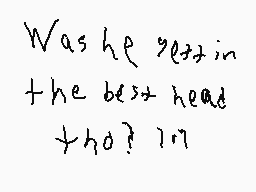 Was he gettin
the best head
tho? 1n